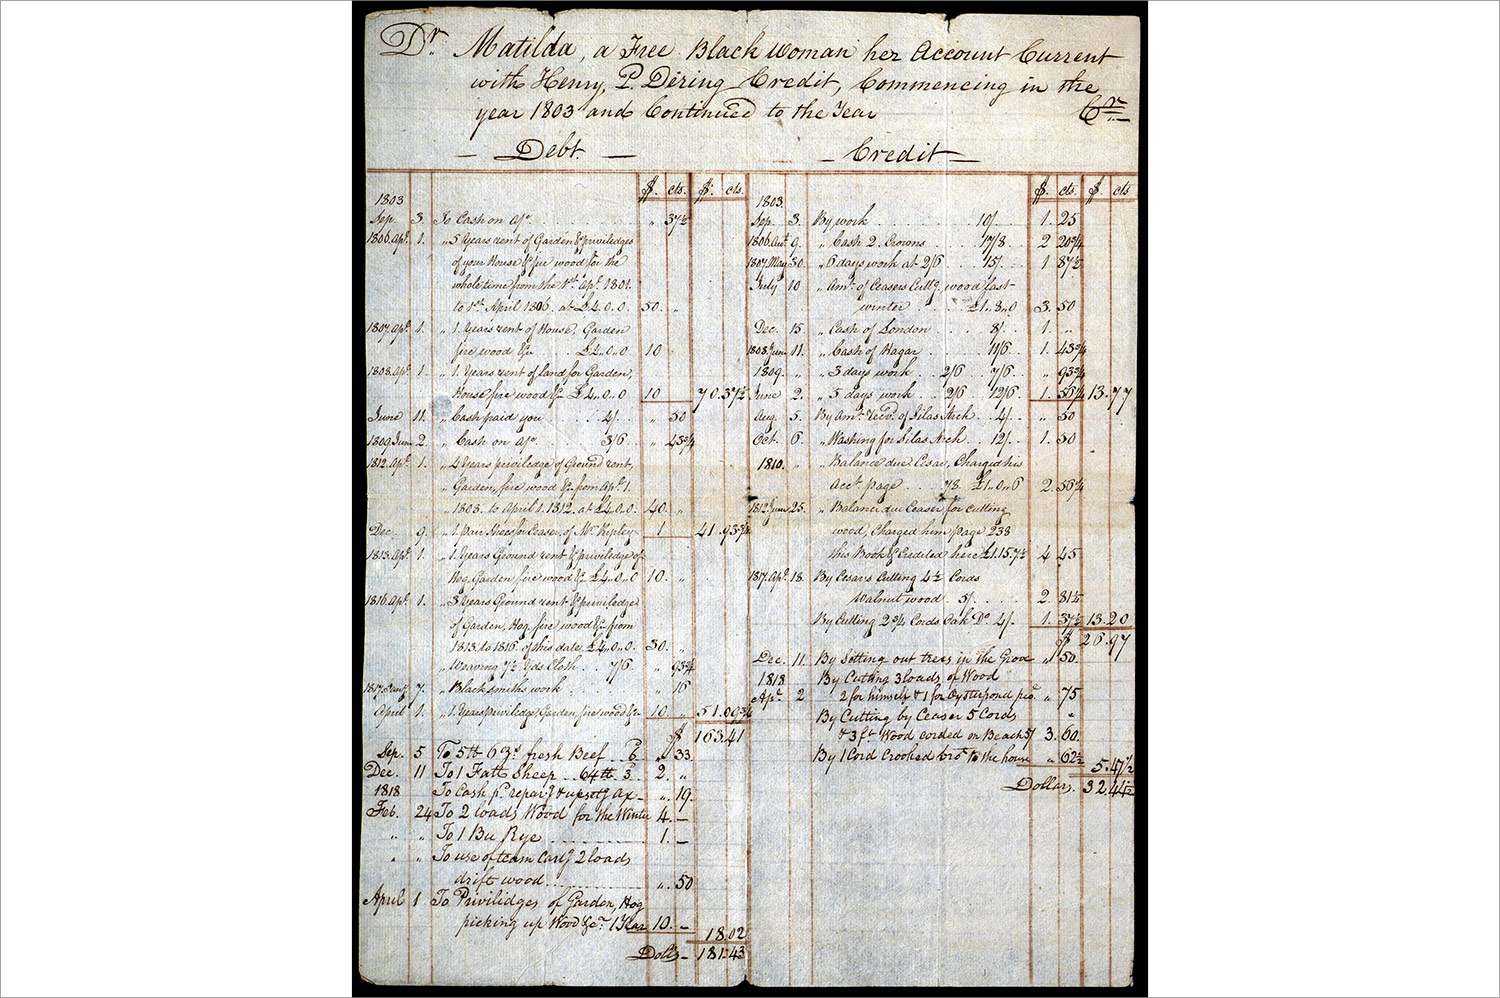 Dr. Matilda, a Free Black Woman her Account Current
with Henry, P. Dering Credit, Commencing in the
year 1803 and Continued to the Year Cr.
— Debt. —
$. cts. $. cts.
1803
Sep. 3. To Cash on a/c. " 37½
1806. Apl. 1. " 5 Years rent of Garden & priviledges
of your House & fire wood for the
whole time from the 1st. Apl. 1801.
to 1st. April 1806. at £4.0.0. 50. "
1807. Apl. 1. " 1. Years rent of House, Garden
fire wood &c. £4..0..0 10
1808. Apl. 1. " 1. Years rent of land for Garden,
House fire wood &c. £4..0..0 10 70.37½
June 11. " Cash paid you 4/. " 50
1809. June 2. " Cash on a/c. 3/6. " 43¾
1812. Apl. 1. " 4 Years priviledge of Ground rent,
" Garden, fire wood &c. from Apl. 1.
" 1808. to April 1. 1812. at £4.0.0. 40. "
Dec. 9. " 1. pair Shoes for Ceaser, of Mr. Ripley 1 41.93¾
1813. Apl. 1. " 1. Years Ground rent & priviledge of
Hog, Garden, fire wood &c. £4..0..0 10. "
1816. Apl. 1. " 3 Years Ground rent & priviledge
of Garden, Hog, fire wood &c. from
1813. to 1816. of this date, £4..0..0. 30. "
" Weaving 7½ Yds. Cloth 7/6 " 93¾
1817. Jany. 7. " Blacksmiths work " 16
April 1. " 1. Years priviledge, Garden, fire wood &c 10 51.09¾
$ 163.41
Sep. 5 To 5 lb 6 fresh Beef 6. " 33
Dec. 11 To 1 Fatt Sheep 64 lb 3. 2. "
1818 To Cash pd. repairg & upsettg Ax - ". 19.
Feb. 24 To 2 loads Wood for the Winter 4. -
" " To 1 Bu Rye 1. -
" " To use of team Carg 2 loads
drift wood ". 50
April 1 To Priviledges of Garden, Hog
picking up Wood &c. 1 Year 10. - 18.02
Dolls - 181.43
— Credit —
$. cts. $. cts
1803.
Sep. 3. By work 10/. 1. 25
1806. 9. " Cash 2. Crowns 17/8. 2 20¾
1807. May 30. " 6 days work at 2/6 15/. 1 87½
July 10 " Amt. of Ceasers Cuttg. wood last
winter £1..8..0 3. 50
Dec. 15. " Cash of London 8/. 1. "
1808. June 11. " Cash of Hagar 11/6 1. 43¾
1809. " " 3 days work 2/6 7/6 " 93¾
June 2. " 5 days work 2/6 12/6 1. 56¼ 13.77
Aug. 5. By Amt. recd. of Silas Arch 4/. " 50
Oct. 6. " Washing for Silas Arch 12/. 1. 50
1810. " " Balance due Cesar, Charged his
Acct. page 78. £1..0..6 2. 56¼
1812. June 25. " Balance due Ceaser for cutting
wood, Charged him page 233
this Book & Credited here £1.15.7½ 4 45
1817. Apl. 18 By Cesar's Cutting 4½ Cords
Walnut wood 5/. 2. 81½
By Cutting 2¾ Cords Oak Do. 4/. 1. 37½ 13.20
$ 26.97
Dec. 11 By Setting out trees in the Grove " 50.
1818 By Cutting 3 loads of Wood
Apr. 2 2 for himself & 1 for Oysterpond " 75
By Cutting by Ceaser 5 Cords "
& 3 ft Wood corded on Beach 5/ 3. 60.
By 1 Cord Crooked bro't to the house " 62½ 5.47½
Dollars. 32.44½